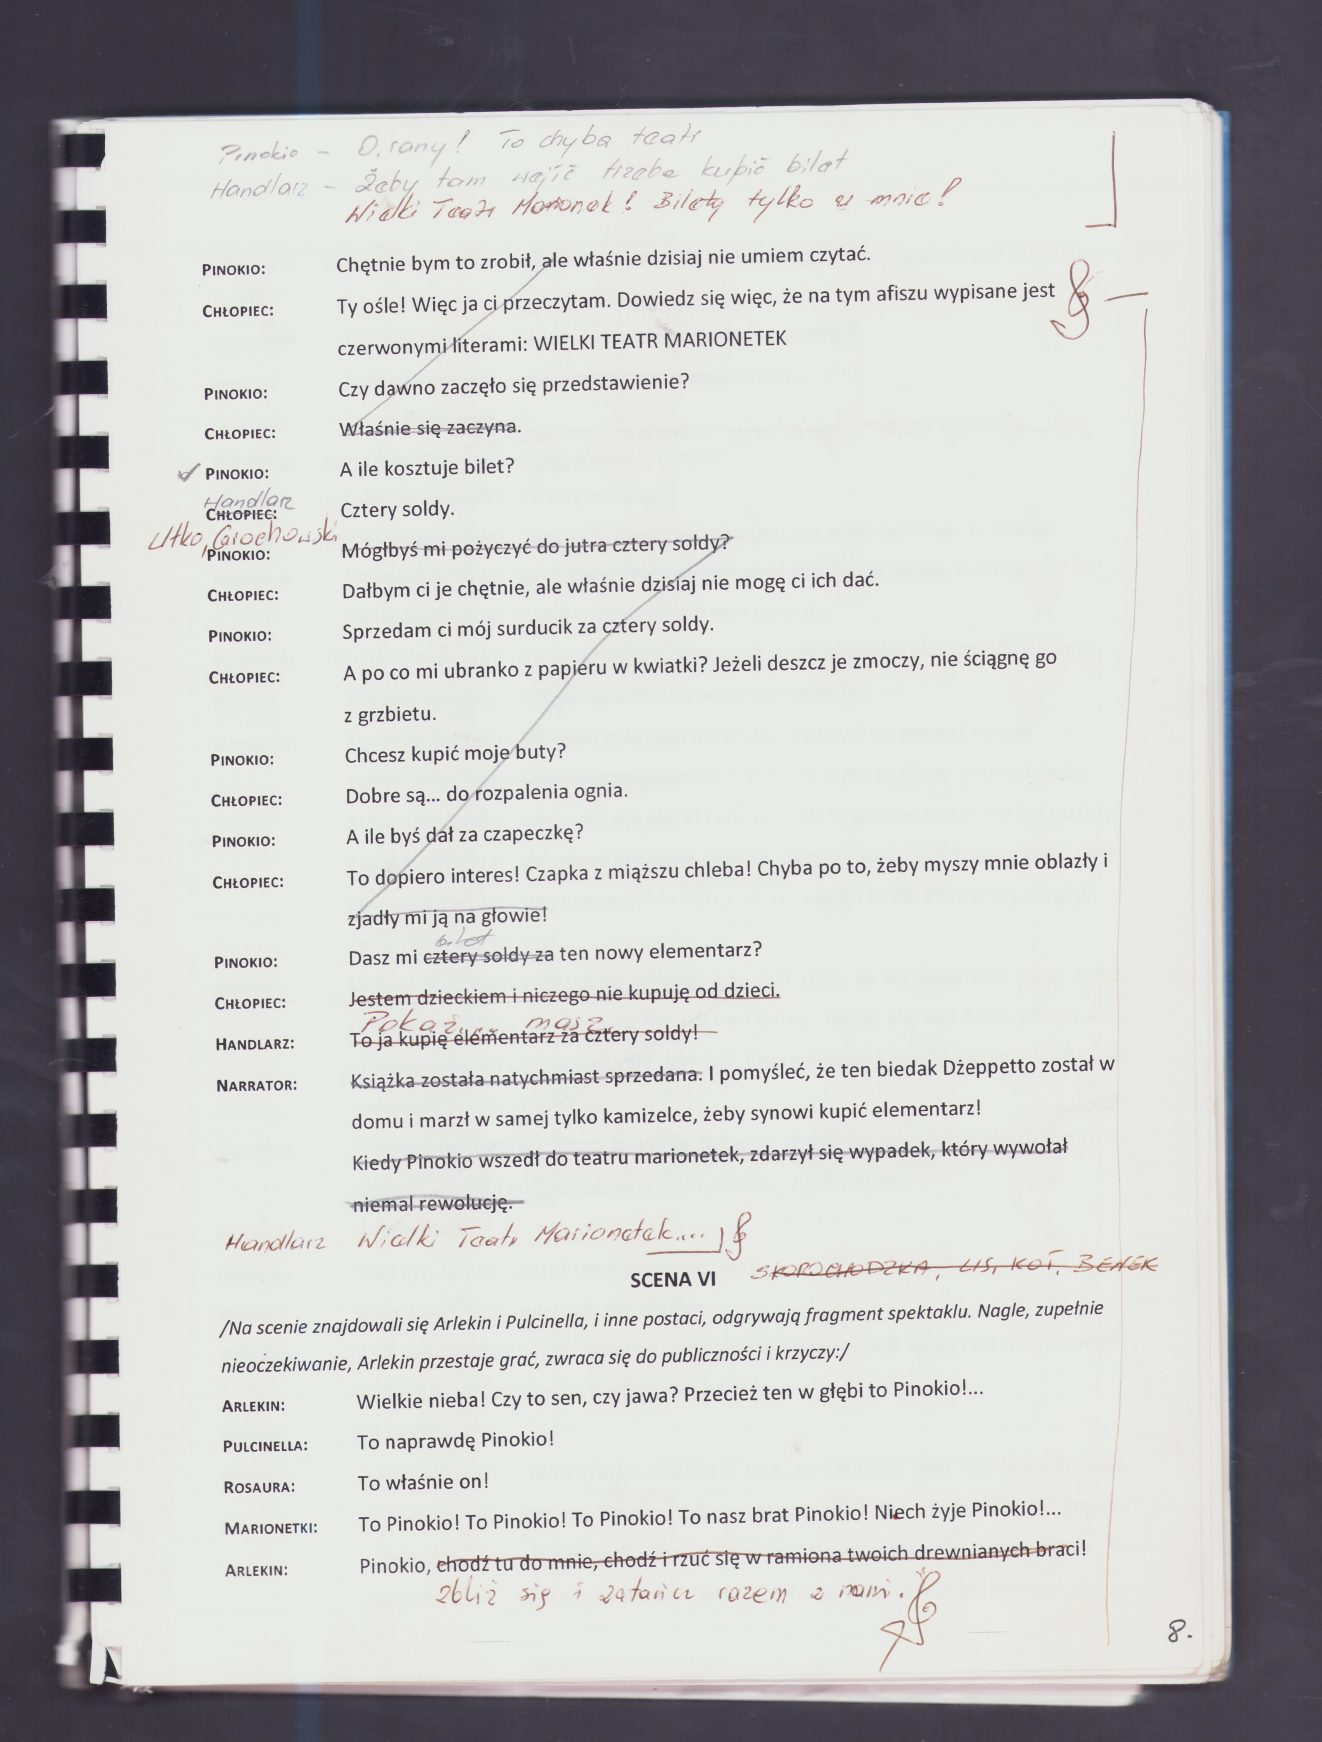 Pinokio – O, rany! To chyba teatr
Handlarz – Żeby tam wejść trzeba kupić bilet
Wielki Teatr Marionek! Bilety tylko u mnie!
PINOKIO: Chętnie bym to zrobił, ale właśnie dzisiaj nie umiem czytać.
CHŁOPIEC: Ty ośle! Więc ja ci przeczytam. Dowiedz się więc, że na tym afiszu wypisane jest
czerwonymi literami: WIELKI TEATR MARIONETEK
PINOKIO: Czy dawno zaczęło się przedstawienie?
CHŁOPIEC: Właśnie się zaczyna.
PINOKIO: A ile kosztuje bilet?
Handlarz
CHŁOPIEC: Cztery soldy.
Utko, Grochowski
PINOKIO: Mógłbyś mi pożyczyć do jutra cztery soldy?
CHŁOPIEC: Dałbym ci je chętnie, ale właśnie dzisiaj nie mogę ci ich dać.
PINOKIO: Sprzedam ci mój surducik za cztery soldy.
CHŁOPIEC: A po co mi ubranko z papieru w kwiatki? Jeżeli deszcz je zmoczy, nie ściągnę go
z grzbietu.
PINOKIO: Chcesz kupić moje buty?
CHŁOPIEC: Dobre są... do rozpalenia ognia.
PINOKIO: A ile byś dał za czapeczkę?
CHŁOPIEC: To dopiero interes! Czapka z miąższu chleba! Chyba po to, żeby myszy mnie oblazły i
zjadły mi ją na głowie!
bilet
PINOKIO: Dasz mi cztery soldy za ten nowy elementarz?
CHŁOPIEC: Jestem dzieckiem i niczego nie kupuję od dzieci.
Pokaż... masz.
HANDLARZ: To ja kupię elementarz za cztery soldy!
NARRATOR: Książka została natychmiast sprzedana. I pomyśleć, że ten biedak Dżeppetto został w
domu i marzł w samej tylko kamizelce, żeby synowi kupić elementarz!
Kiedy Pinokio wszedł do teatru marionetek, zdarzył się wypadek, który wywołał
niemal rewolucję.
Handlarz Wielki Teatr Marionetek....
SCENA VI SKOROCHODZKA, LIS, KOT, BENEK
/Na scenie znajdowali się Arlekin i Pulcinella, i inne postaci, odgrywają fragment spektaklu. Nagle, zupełnie
nieoczekiwanie, Arlekin przestaje grać, zwraca się do publiczności i krzyczy:/
ARLEKIN: Wielkie nieba! Czy to sen, czy jawa? Przecież ten w głębi to Pinokio!...
PULCINELLA: To naprawdę Pinokio!
ROSAURA: To właśnie on!
MARIONETKI: To Pinokio! To Pinokio! To Pinokio! To nasz brat Pinokio! Niech żyje Pinokio!...
ARLEKIN: Pinokio, chodź tu do mnie, chodź i rzuć się w ramiona twoich drewnianych braci!
zbliż się i zatańcz razem z nami.
8.